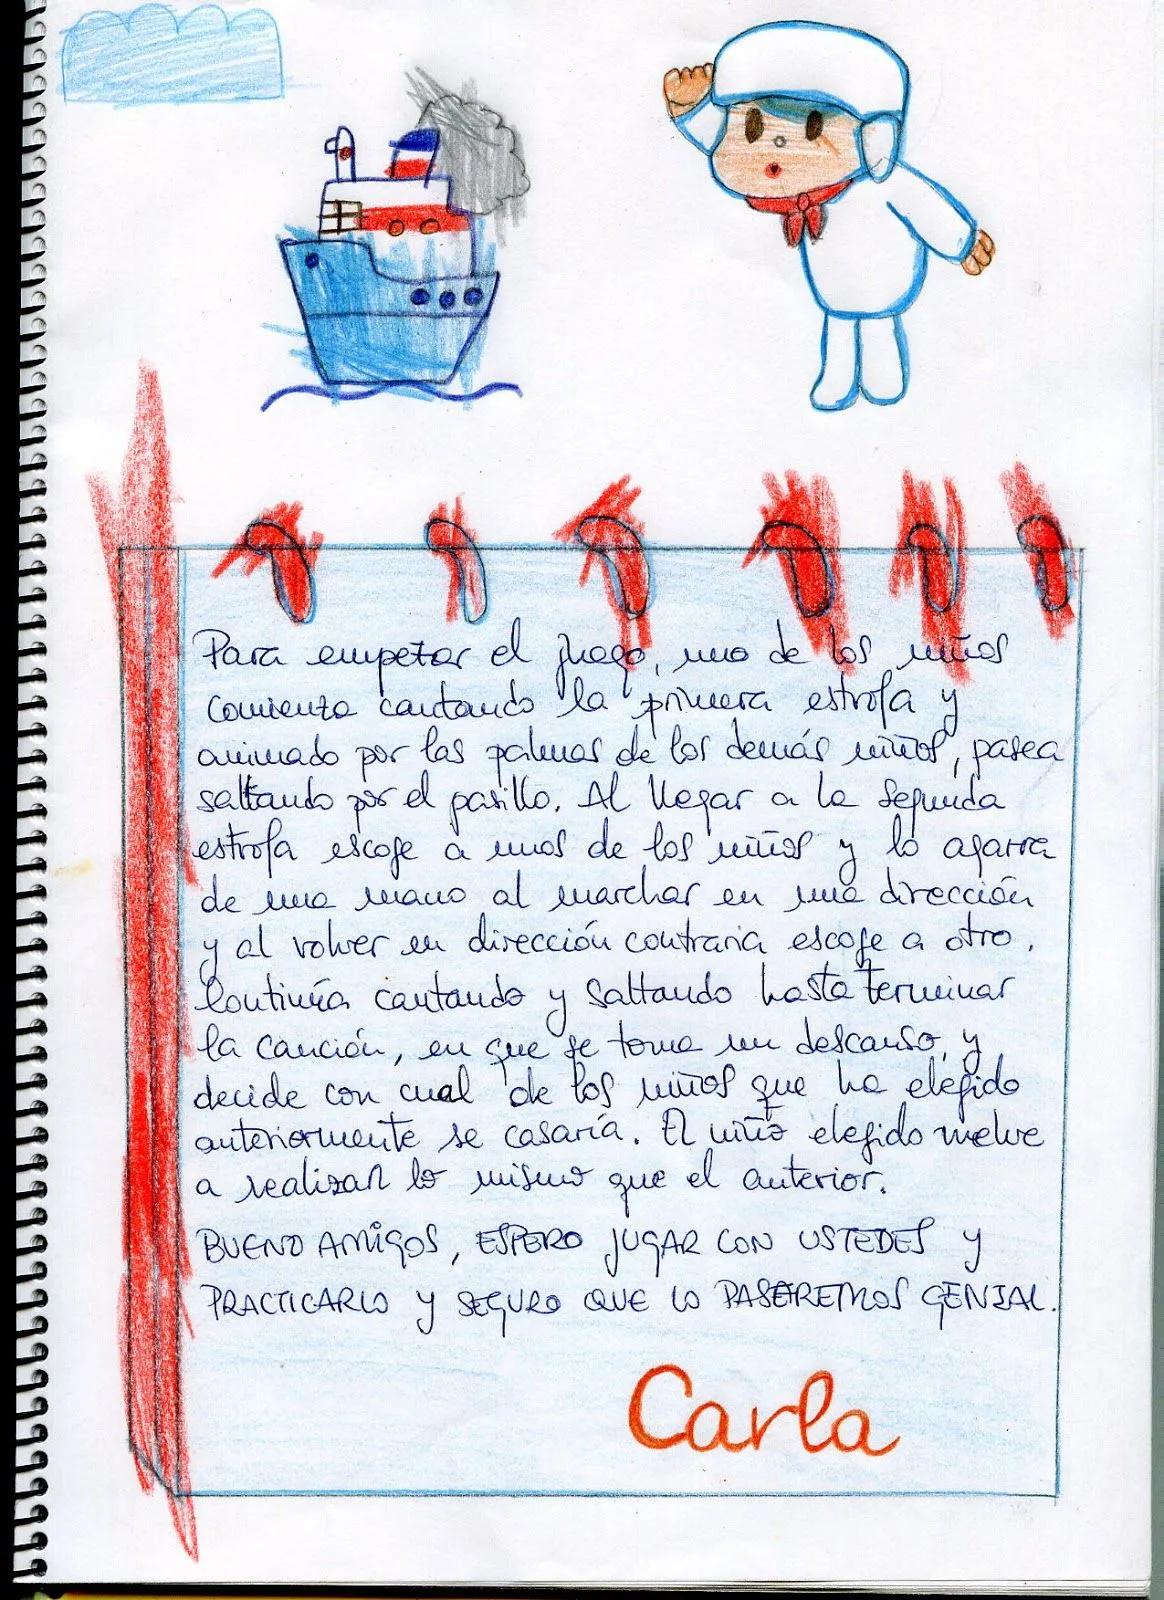 Para empezar el juego, uno de los niños
comienza cantando la primera estrofa y
animado por las palmas de los demás niños, pasea
saltando por el pasillo. Al llegar a la segunda
estrofa escoge a unos de los niños y lo agarra
de una mano al marchar en una dirección
y al volver en dirección contraria escoge a otro.
Continúa cantando y saltando hasta terminar
la canción, en que se toma un descanso, y
decide con cual de los niños que ha elegido
anteriormente se casaría. El niño elegido vuelve
a realizar lo mismo que el anterior.
BUENO AMIGOS, ESPERO JUGAR CON USTEDES y
PRACTICARLO y SEGURO QUE LO PASAREMOS GENIAL.
Carla